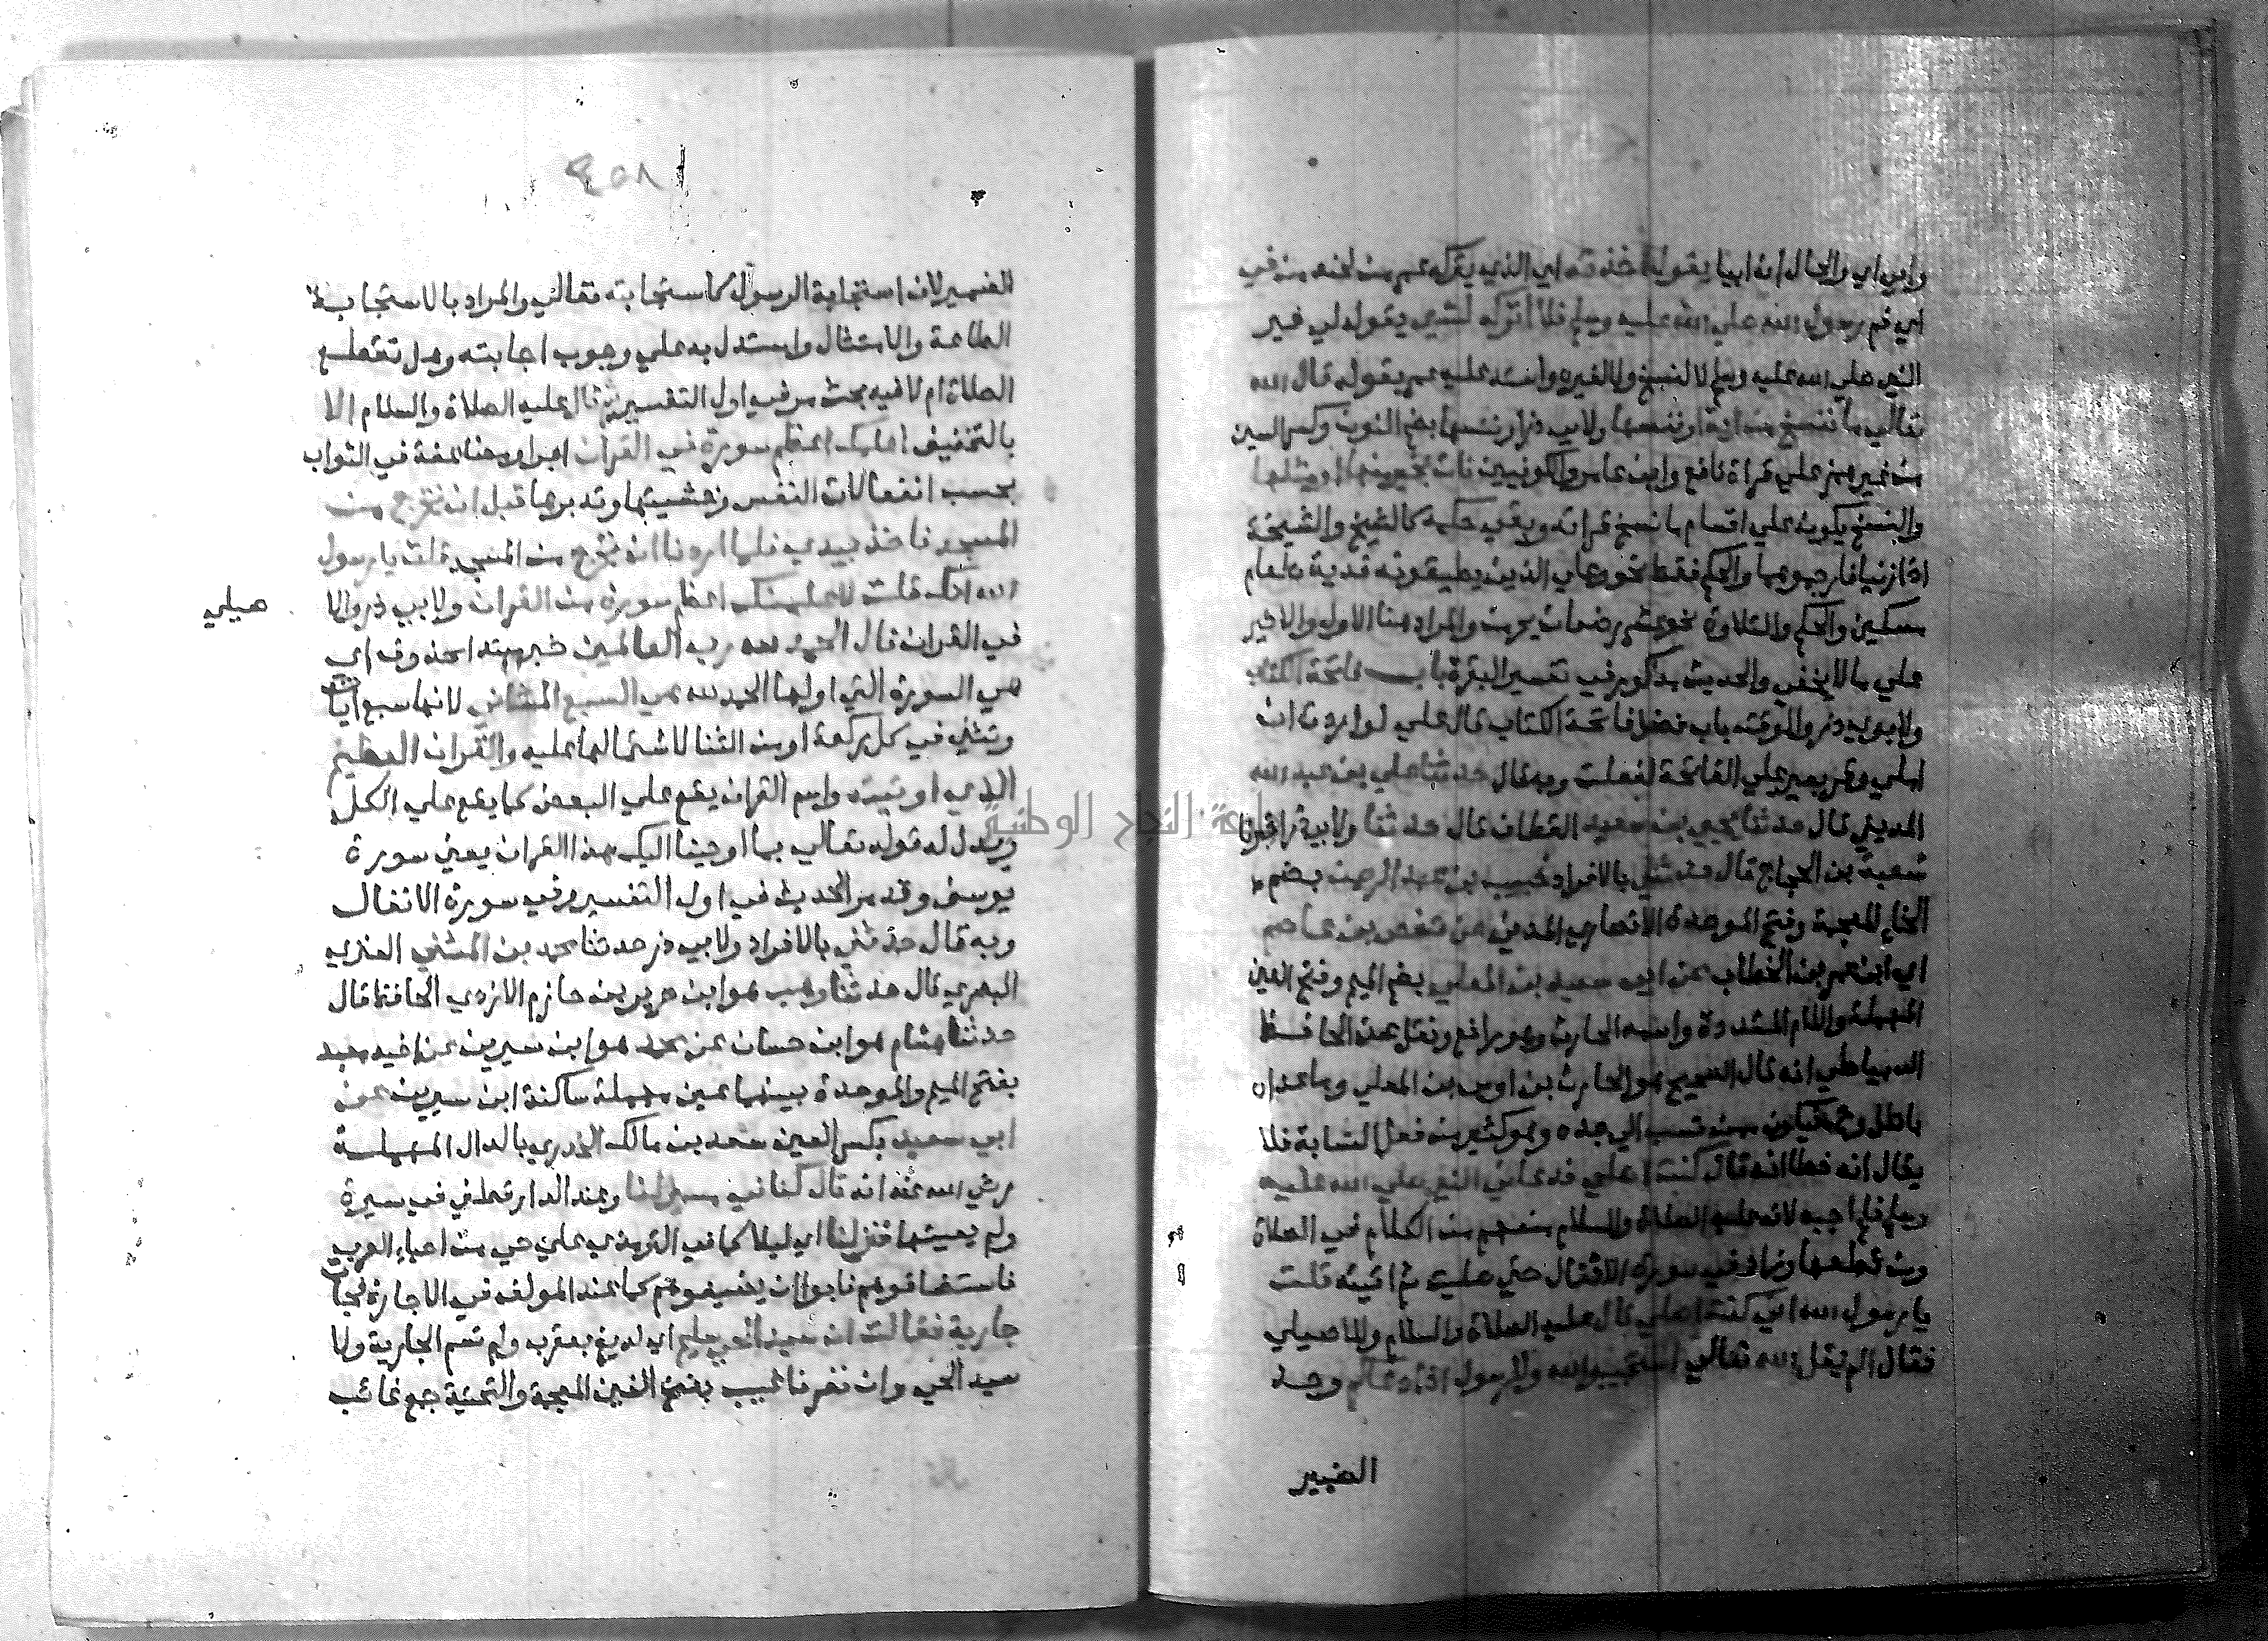 وابي اي والحال ان ابيا يقول اخذته اي الذي يتركه عمر من لحنه من في
اي فم رسول الله صلي الله عليه وسلم فلا اتركه لشي يقوله لي غير
النبي صلي الله عليه وسلم لا لنسخ ولا لغيره واستدل عليه عمر بقوله قال الله
تعالي ما ننسخ من اية او ننسها ولابي ذر او ننسها بضم النون وكسر السين
من غير همز علي قراة نافع وابن عامر والكوفيين نات بخير منها او مثلها
والنسخ يكون علي اقسام ما نسخ قراته وبقي حكمه كالشيخ والشيخة
اذا زنيا فارجموهما والحكم فقط نحو وعلي الذين يطيقونه فدية طعام
مسكين والحكم والتلاوة نحو عشر رضعات يحرمن والمراد هنا الاول والاخير
علي ما لا يخفي والحديث مذكور في تفسير البقرة باب فاتحة الكتاب
ولابوي ذر والوقت باب فضل فاتحة الكتاب قال علي لو اردت ان
املي وقر بعير علي الفاتحة لفعلت وبه قال حدثنا علي بن عبد الله
المديني قال حدثنا يحيي بن سعيد القطان قال حدثنا ولابي ذر اخبرنا
شعبة بن الحجاج قال حدثني بالافراد خبيب بن عبد الرحمن بضم
الخاء المعجمة وفتح الموحدة الانصاري المدني عن حفص بن عاصم
اي ابن عمر بن الخطاب عن ابي سعيد بن المعلي بضم الميم وفتح العين
المهملة واللام المشددة واسمه الحارث وهو رافع ونقل عن الحافظ
الدمياطي انه قال الصحيح هو الحارث بن اوس بن المعلي وما عداه
باطل وحينئذ يكون ممن نسب الي جده وهو كثير من فعل النسابة فلا
يقال انه خطا انه قال كنت اصلي فدعاني النبي صلي الله عليه
وسلم فلم اجبه لانه عليه الصلاة والسلام منعهم من الكلام في الصلاة
ومن قطعها وزاد في سورة الانفال حتي صليت ثم اتيته قلت
يا رسول الله اني كنت اصلي قال عليه الصلاة والسلام وللاصيلي
فقال الم يقل الله تعالي استجيبوا لله وللرسول اذا دعاكم وحد
الضمير
٤٥٨
الضمير لان استجابة الرسول كاستجابته تعالي والمراد بالاستجابة
الطاعة والامتثال واستدل به علي وجوب اجابته وهل تقطع
الصلاة ام لا فيه بحث مر في اول التفسير ثم قال عليه الصلاة والسلام الا
بالتخفيف اعلمك اعظم سورة في القران اجرا ومضاعفة في الثواب
بحسب انفعالات النفس وخشيتها وتدبرها قبل ان تخرج من
المسجد فاخذ بيدي فلما اردنا ان نخرج من المسجد قلت يا رسول
الله انك قلت لاعلمنك اعظم سورة من القران ولابي ذر والا
صيلي
في القران قال الحمد لله رب العالمين خبر مبتدا محذوف اي
هي السورة التي اولها الحمد لله هي السبع المثاني لانها سبع ايات
وتثني في كل ركعة او من الثنا لاشتمالها عليه والقران العظيم
الذي اوتيته واسم القران يقع علي البعض كما يقع علي الكل
ويدل له قوله تعالي بما اوحينا اليك هذا القران يعني سورة
يوسف وقد مر الحديث في اول التفسير وفي سورة الانفال
وبه قال حدثني بالافراد ولابي ذر حدثنا محمد بن المثني العنزي
البصري قال حدثنا وهب هو ابن جرير بن حازم الازدي الحافظ قال
حدثنا هشام هو ابن حسان عن محمد هو ابن سيرين عن اخيه معبد
بفتح الميم والموحدة بينهما عين مهملة ساكنة ابن سيرين عن
ابي سعيد بكسر العين سعد بن مالك الخدري بالدال المهملة
رضي الله عنه انه قال كنا في مسير لنا وعند الدارقطني في سيرة
ولم يعينها فنزلنا اي ليلا كما في الترمذي علي حي من احياء العرب
فاستضافوهم فابوا ان يضيفوهم كما عند المولف في الاجارة فجات
جارية فقالت ان سيد الحي سليم اي لديغ بعقرب ولم تسم الجارية ولا
سيد الحي وان نفرنا غيب بفتح الغين المعجمة والتحتية جمع غائب
جامعة النجاح الوطنية